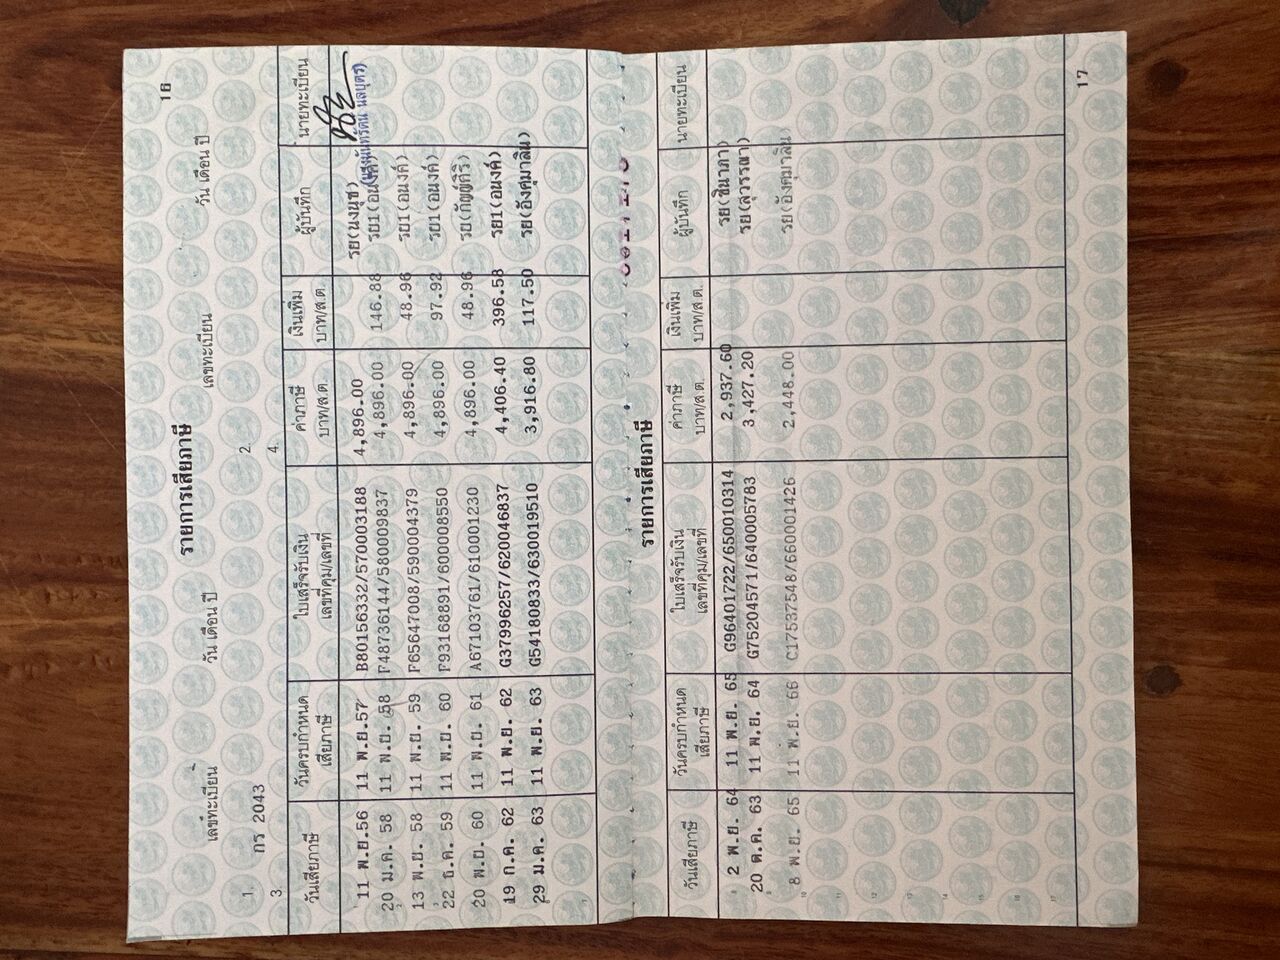 16
รายการเสียภาษี
เลขทะเบียน วัน เดือน ปี เลขทะเบียน วัน เดือน ปี
1. กร 2043 2.
3. 4.
วันเสียภาษี วันครบกำหนดเสียภาษี ใบเสร็จรับเงิน เลขที่คุม/เลขที่ ค่าภาษี บาท/ส.ต. เงินเพิ่ม บาท/ส.ต. ผู้บันทึก นายทะเบียน
11 พ.ย.56 11 พ.ย.57 B80156332/570003188 4,896.00 รย(นงนุช)
20 ม.ค. 58 11 พ.ย. 58 F48736144/580009837 4,896.00 146.88 รย1(อนงค์)
13 พ.ย. 58 11 พ.ย. 59 F65647008/590004379 4,896.00 48.96 รย1(อนงค์)
22 ธ.ค. 59 11 พ.ย. 60 F93168891/600008550 4,896.00 97.92 รย1(อนงค์)
20 พ.ย. 60 11 พ.ย. 61 A67103761/610001230 4,896.00 48.96 รย(กัญกิริ)
19 ก.ค. 62 11 พ.ย. 62 G37996257/620046837 4,406.40 396.58 รย1(อนงค์)
29 ม.ค. 63 11 พ.ย. 63 G54180833/630019510 3,916.80 117.50 รย(อังคุมาลิน)
รายการเสียภาษี
วันเสียภาษี วันครบกำหนดเสียภาษี ใบเสร็จรับเงิน เลขที่คุม/เลขที่ ค่าภาษี บาท/ส.ต. เงินเพิ่ม บาท/ส.ต. ผู้บันทึก นายทะเบียน
2 พ.ย. 64 11 พ.ย. 65 G96401722/650010314 2,937.60 รย(ชินาภา)
20 ต.ค. 63 11 พ.ย. 64 G75204571/640005783 3,427.20 รย(สุวรรณา)
8 พ.ย. 65 11 พ.ย. 66 C17537548/660001426 2,448.00 รย(อังคุมาลิน)
17